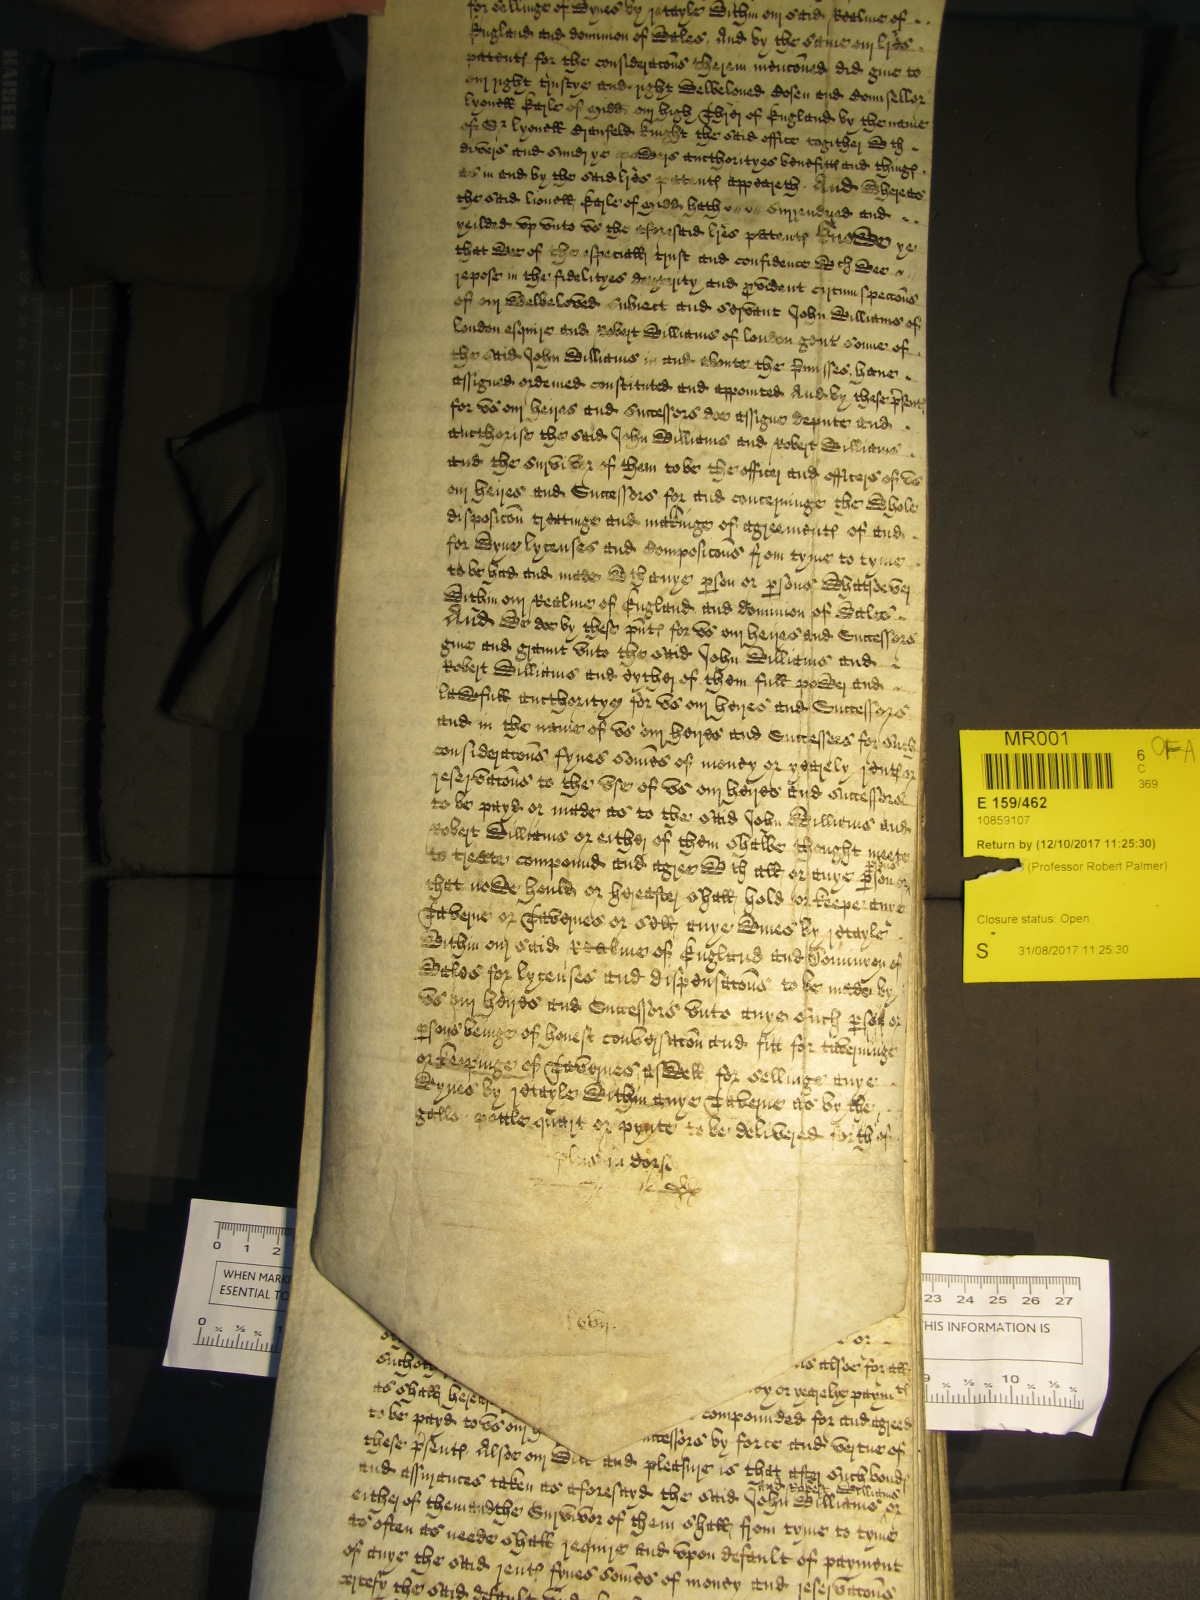 for sellinge of Wynes by retayle within our said Realme of
England and dominion of Wales. And by the same our lres
patents for the consideracons therein mencioned did give to
our right trustye and right welbeloved Cosen and Counsellor
Lyonell Earle of Midd our high Threr of England by the name
of Sr Lyonell Cranfeld knight the said office together wth
divers and sundrye powers aucthorityes benefitts and things
as in and by the said lres patents appeareth. And whereas
the said lionell Earle of Midd hath surrendred and
yeilded vp vnto vs the aforesaid lres patents knowe ye
that wee of the especiall trust and confidence wch wee
repose in the fidelityes and provident circumspeccons
of our welbeloved subiect and servant John Williams of
london esquire and Robert Williams of london gent sonne of
the said John Williams in and aboute the pmisses, have
assigned ordeined constituted and appointed And by these psents
for vs our heires and successors doe assigne depute and
aucthorise the said John Williams and Robert Williams
and the survivor of them to be the officer and officers of vs
our heires and Successors for and concerninge the whole
disposicon treatinge and makinge of agreements of and
for wyne lycenses and Composicons from tyme to tyme
to be had and made wth anye pson or psons whatsoever
within our Realme of England and dominion of Wales
And we doe by these pnts for vs our heires and Successors
give and graunt vnto the said John Williams and
Robert Williams and eyther of them full power and
lawfull aucthoritye for vs our heires and Successors
and in the name of vs our heires and Successors for such
consideracons fynes somes of money or yearely rents or
reservacons to the vse of vs our heires and successors
to be payd or made as to the said John Williams and
Robert Williams or either of them shalbe thought meete
to treate compound and agree wth all or anye pson or psons
that nowe hould or hereafter shall hold or keepe anye
Taverne or Tavernes or sell anye wines by retayle
within our said Realme of England and Dominion of
Wales for lycenses and dispensacons to be made by
vs our heires and Successors vnto anye such pson or
psons beinge of honest conversacon and fitt for taverninge
or keepinge of Tavernes aswell for sellinge anye
wynes by retayle within anye Taverne as by the
gallo pottle quart or pynte to be delivered forth of
plus in dorso
or
such
is alsoe for all
as shall herea
ey or yearely paymts
to be payd to vs our h
compounded for and agreed
ccessors by force and vertue of
these psents. Alsoe our will and pleasure is that after such bonds
and assurances taken as aforesayd the said John Williams and Robert Williams or
either of them and the Survivor of them shall from tyme to tyme
as often as neede shall require and vpon default of payment
of anye the said rents fynes somes of money and reservacons
the said default
MR001
6
C
369
OFA
E 159/462
10859107
Return by (12/10/2017 11:25:30)
(Professor Robert Palmer)
Closure status: Open
S 31/08/2017 11:25:30
0 1 2
WHEN MARKI
ESENTIAL TO
0
23 24 25 26 27
THIS INFORMATION IS
9 10